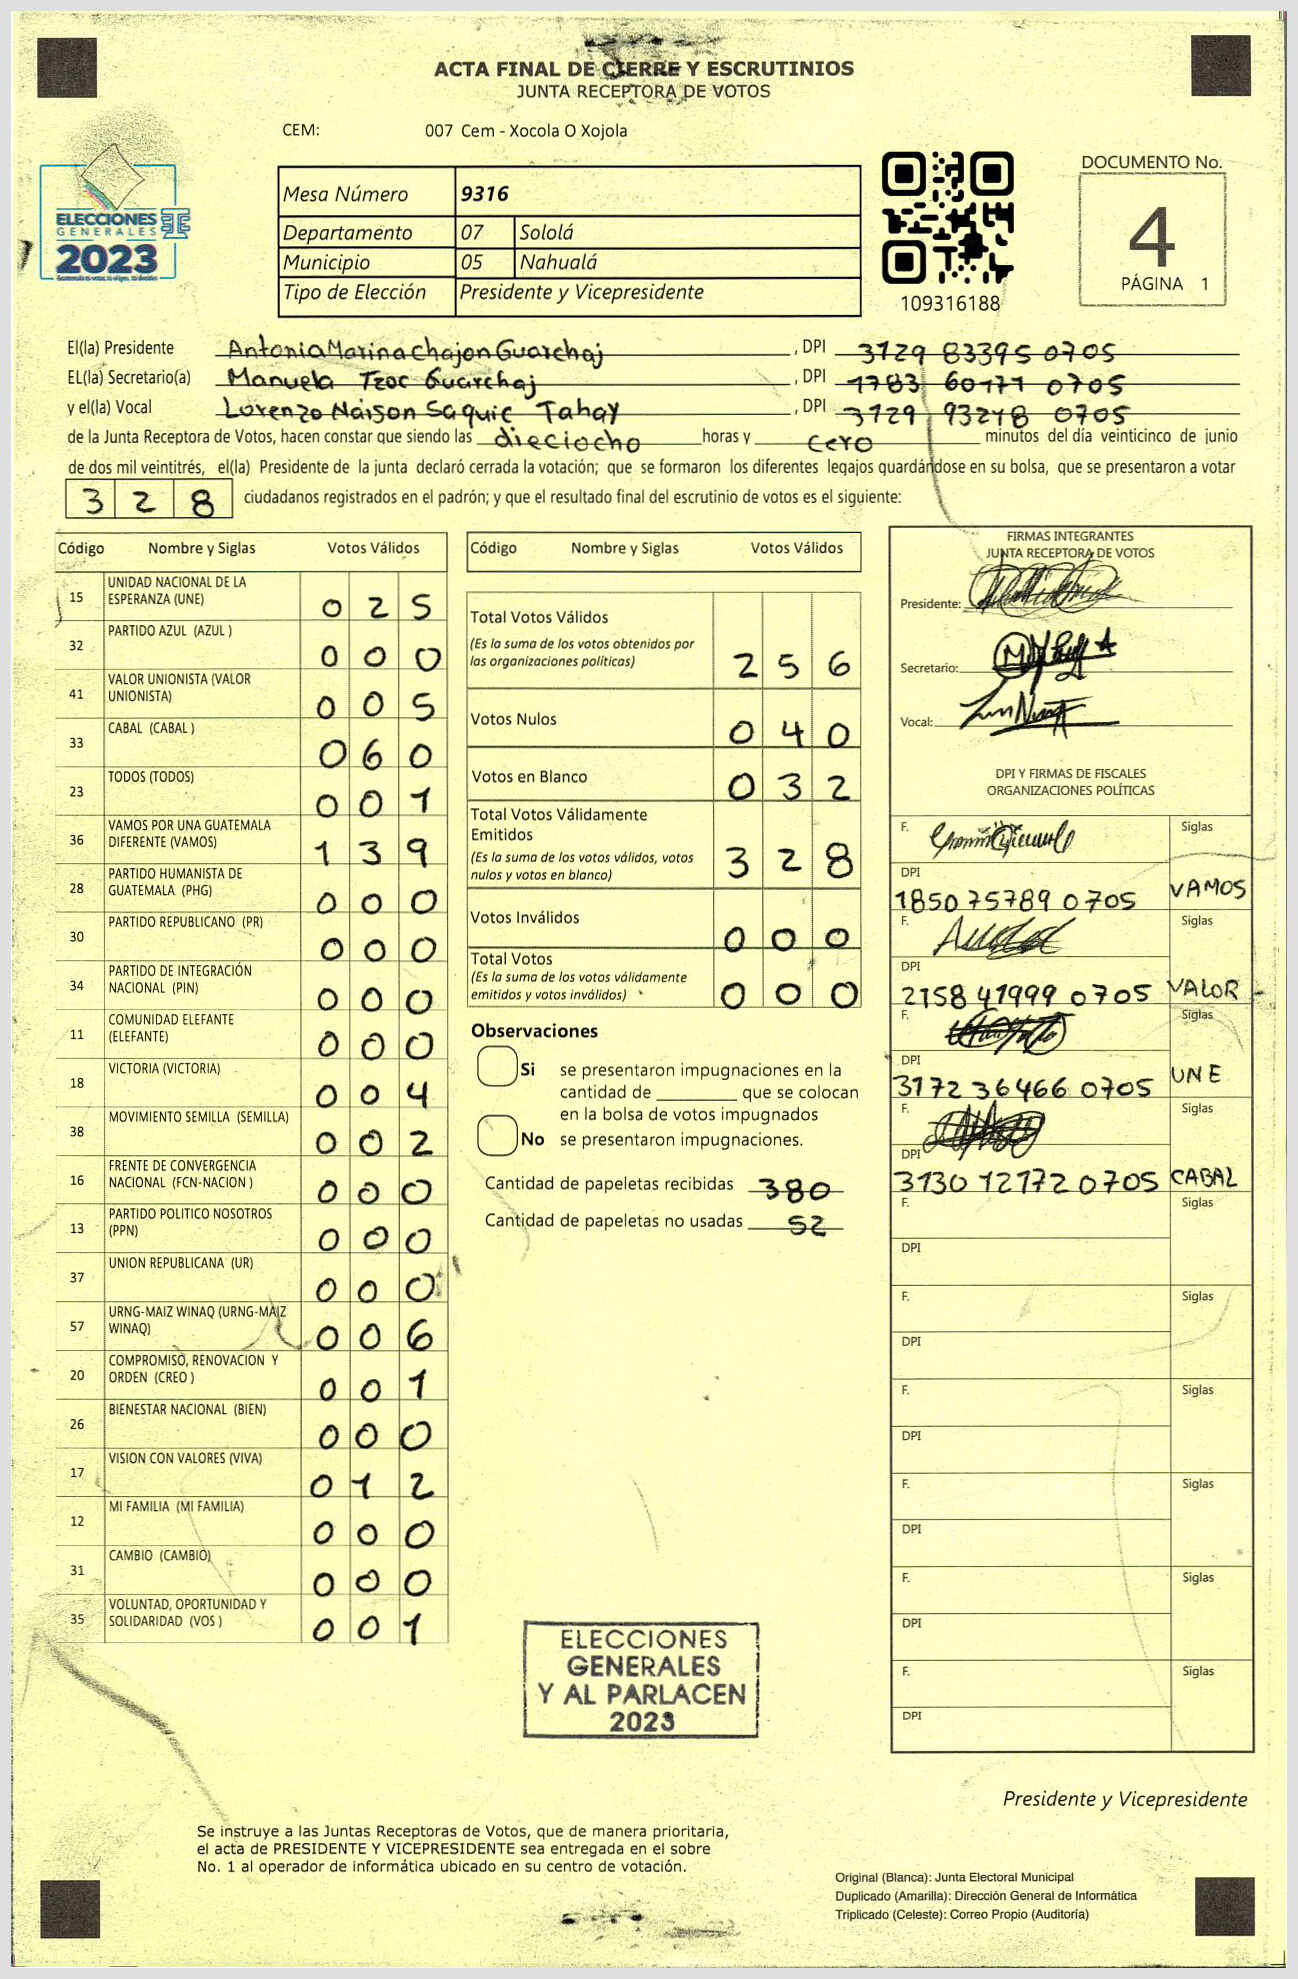 ACTA FINAL DE CIERRE Y ESCRUTINIOS
JUNTA RECEPTORA DE VOTOS
CEM: 007 Cem - Xocola O Xojola
ELECCIONES
GENERALES
2023
Mesa Número 9316
Departamento 07 Sololá
Municipio 05 Nahualá
Tipo de Elección Presidente y Vicepresidente
109316188
DOCUMENTO No.
4
PÁGINA 1
El(la) Presidente Antonia Marina Chajon Guarchaj , DPI 3129 83395 0705
EL(la) Secretario(a) Manuela Tzoc Guarchaj , DPI 1783 60171 0705
y el(la) Vocal Lorenzo Naison Saquic Tahay , DPI 3129 93218 0705
de la Junta Receptora de Votos, hacen constar que siendo las dieciocho horas y cero minutos del día veinticinco de junio
de dos mil veintitrés, el(la) Presidente de la junta declaró cerrada la votación; que se formaron los diferentes legajos guardándose en su bolsa, que se presentaron a votar
328 ciudadanos registrados en el padrón; y que el resultado final del escrutinio de votos es el siguiente:
Código Nombre y Siglas Votos Válidos
15 UNIDAD NACIONAL DE LA
ESPERANZA (UNE) 025
32 PARTIDO AZUL (AZUL ) 000
41 VALOR UNIONISTA (VALOR
UNIONISTA) 005
33 CABAL (CABAL ) 060
23 TODOS (TODOS) 001
36 VAMOS POR UNA GUATEMALA
DIFERENTE (VAMOS) 139
28 PARTIDO HUMANISTA DE
GUATEMALA (PHG) 000
30 PARTIDO REPUBLICANO (PR) 000
34 PARTIDO DE INTEGRACIÓN
NACIONAL (PIN) 000
11 COMUNIDAD ELEFANTE
(ELEFANTE) 000
18 VICTORIA (VICTORIA) 004
38 MOVIMIENTO SEMILLA (SEMILLA) 002
16 FRENTE DE CONVERGENCIA
NACIONAL (FCN-NACION ) 000
13 PARTIDO POLITICO NOSOTROS
(PPN) 000
37 UNION REPUBLICANA (UR) 000
57 URNG-MAIZ WINAQ (URNG-MAIZ
WINAQ) 006
20 COMPROMISO, RENOVACION Y
ORDEN (CREO ) 001
26 BIENESTAR NACIONAL (BIEN) 000
17 VISION CON VALORES (VIVA) 012
12 MI FAMILIA (MI FAMILIA) 000
31 CAMBIO (CAMBIO) 000
35 VOLUNTAD, OPORTUNIDAD Y
SOLIDARIDAD (VOS ) 001
Código Nombre y Siglas Votos Válidos
Total Votos Válidos
(Es la suma de los votos obtenidos por
las organizaciones políticas) 256
Votos Nulos 040
Votos en Blanco 032
Total Votos Válidamente
Emitidos
(Es la suma de los votos válidos, votos
nulos y votos en blanco) 328
Votos Inválidos 000
Total Votos
(Es la suma de los votos válidamente
emitidos y votos inválidos) 000
Observaciones
Si se presentaron impugnaciones en la
cantidad de ________ que se colocan
en la bolsa de votos impugnados
No se presentaron impugnaciones.
Cantidad de papeletas recibidas 380
Cantidad de papeletas no usadas 52
ELECCIONES
GENERALES
Y AL PARLACEN
2023
FIRMAS INTEGRANTES
JUNTA RECEPTORA DE VOTOS
Presidente:
Secretario:
Vocal:
DPI Y FIRMAS DE FISCALES
ORGANIZACIONES POLÍTICAS
F. Siglas
DPI
1850 75789 0705 VAMOS
F. Siglas
DPI
2158 41999 0705 VALOR
F. Siglas
DPI
3172 36466 0705 UNE
F. Siglas
DPI
3130 12172 0705 CABAL
F. Siglas
DPI
F. Siglas
DPI
F. Siglas
DPI
F. Siglas
DPI
F. Siglas
DPI
F. Siglas
DPI
Presidente y Vicepresidente
Se instruye a las Juntas Receptoras de Votos, que de manera prioritaria,
el acta de PRESIDENTE Y VICEPRESIDENTE sea entregada en el sobre
No. 1 al operador de informática ubicado en su centro de votación.
Original (Blanca): Junta Electoral Municipal
Duplicado (Amarilla): Dirección General de Informática
Triplicado (Celeste): Correo Propio (Auditoría)